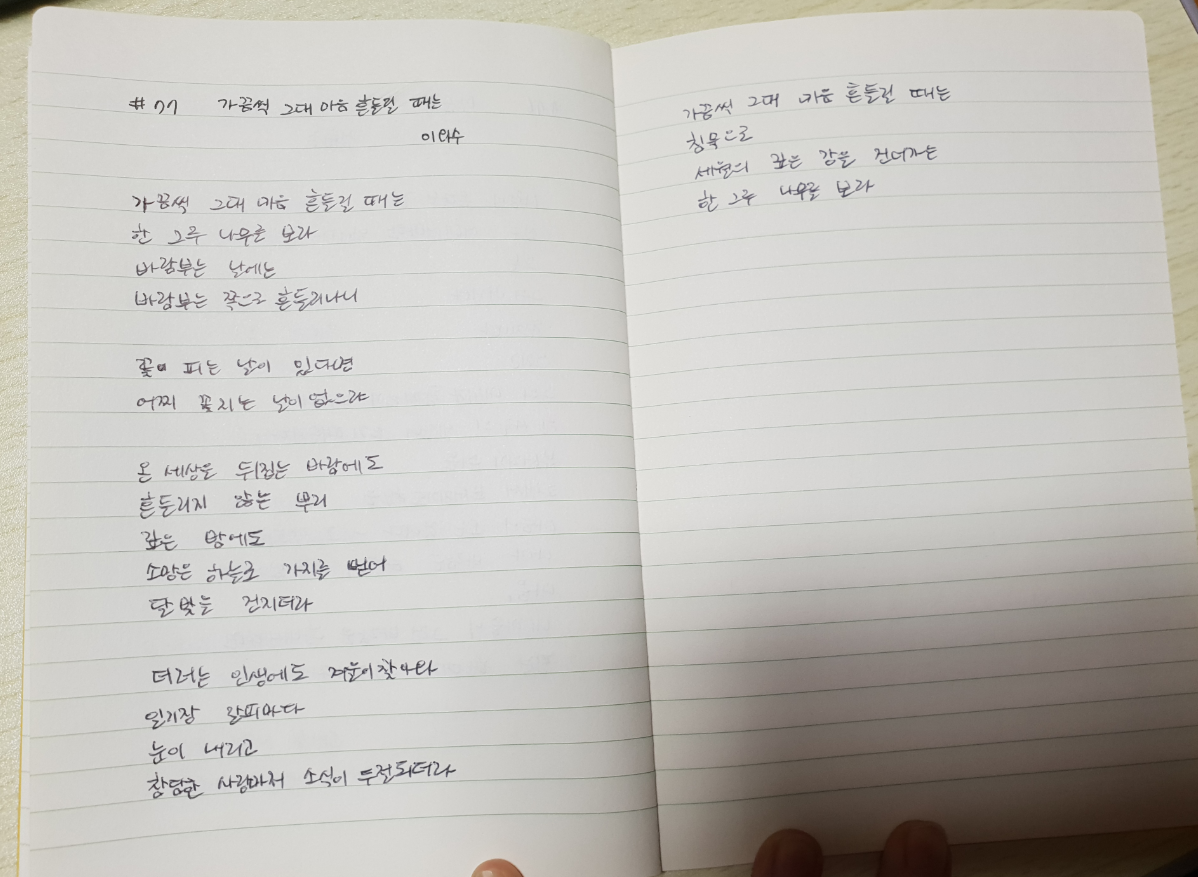 #77 가끔씩 그대 마음 흔들릴 때는
이외수
가끔씩 그대 마음 흔들릴 때는
한 그루 나무를 보라
바람부는 날에는
바람부는 쪽으로 흔들리나니
꽃이 피는 날이 있다면
어찌 꽃지는 날이 없으랴
온 세상을 뒤집는 바람에도
흔들리지 않는 뿌리
깊은 밤에도
소망은 하늘로 가지를 뻗어
달빛을 건지더라
더러는 인생에도 겨울이 찾아와
일기장 갈피마다
눈이 내리고
참담한 사랑마저 소식이 두절되더라
가끔씩 그대 마음 흔들릴 때는
침묵으로
세월의 깊은 강을 건너가는
한 그루 나무를 보라